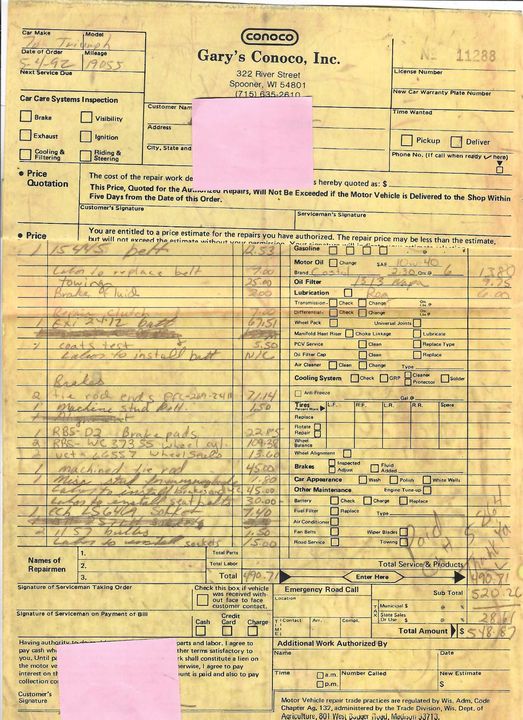 conoco
Gary's Conoco, Inc.
322 River Street
Spooner, WI 54801
(715) 635-2610
No 11288
Car Make
Model
Triumph
Date of Order
Mileage
5-4-92 19055
Next Service Due
License Number
New Car Warranty Plate Number
Car Care Systems Inspection
Brake
Visibility
Exhaust
Ignition
Cooling & Filtering
Riding & Steering
Customer Nam
Address
City, State and
Time Wanted
Pickup Deliver
Phone No. (If call when ready ✓ here)
• Price Quotation
The cost of the repair work de s hereby quoted as: $
This Price, Quoted for the Authorized Repairs, Will Not Be Exceeded if the Motor Vehicle is Delivered to the Shop Within
Five Days from the Date of this Order.
Customer's Signature
Serviceman's Signature
• Price
You are entitled to a price estimate for the repairs you have authorized. The repair price may be less than the estimate,
but will not exceed the estimate without your permission.
1 15445 belt 12.53
Labor to replace belt 7.00
Towing 25.00
Brake fluid 2.00
Clutch 7.00
67.51
2 coats test 3.50
Labor to install batt N/C
Brakes
2 tie rod ends 71.14
1 Machine stud bolt 1.50
1 RBS-D2 Brake pads 22.85
2 RBS-WC 37355 wheel cyl. 109.38
2 wct-46557 wheel seals 13.60
1 machined tie rod 45.00
1 Misc stud 1.80
45.00
Labor to install seat belts
Socket 7.40
2 1157 bulbs 1.50
Labor to install sockets 15.00
Gasoline
Motor Oil Change SAE 10w40
Brand Castrol 2.30 Qts @ 6 13.80
Oil Filter 1513 Napa 9.75
Lubrication 6.00
Transmission Check Change
Differential Check Change
Wheel Pack Universal Joints
Manifold Heat Riser Choke Linkage Lubricate
PCV Service Clean Replace Type
Oil Filter Cap Clean Replace
Air Cleaner Clean Change Type
Cooling System Check GRP Cleaner Protector Solder
Anti Freeze Gal. @
Tires L.F. R.F. L.R. R.R. Spare
Replace
Rotate
Repair
Wheel Balance
Wheel Alignment
Brakes Inspected Adjust Fluid Added
Car Appearance Wash Polish White Walls
Other Maintenance Engine Tune-up
Battery Check Charge Replace
Fuel Filter Replace Type
Air Conditioner
Fan Belts Wiper Blades
Road Service Towing
Paid
Names of Repairmen
1.
2.
3.
Total Parts
Total Labor
Total 490.71
Enter Here
Total Service & Products
490.71
Signature of Serviceman Taking Order
Check this box if vehicle was received without face to face customer contact.
Signature of Serviceman on Payment of Bill
Cash
Credit Card
Charge
Emergency Road Call
Location
Sub Total 520.26
TAX
Municipal $
State Sales Or Use $ 28.61
TIME
Contact Arr. Compl.
Total Amount $ 548.87
Having authority to do parts and labor. I agree to
pay cash wh ther terms satisfactory to
you. Until pa k shall constitute a lien on
the motor ve erwise, I agree to pay
interest on th unt is paid and also to pay
collection co
Customer's Signature
Additional Work Authorized By
Name
Date
Time a.m. p.m.
Number Called
New Estimate
$
Motor Vehicle repair trade practices are regulated by Wis. Adm. Code
Chapter Ag. 132, administered by the Trade Division, Wis. Dept. of
Agriculture, 801 West Badger Road, Madison 53713.